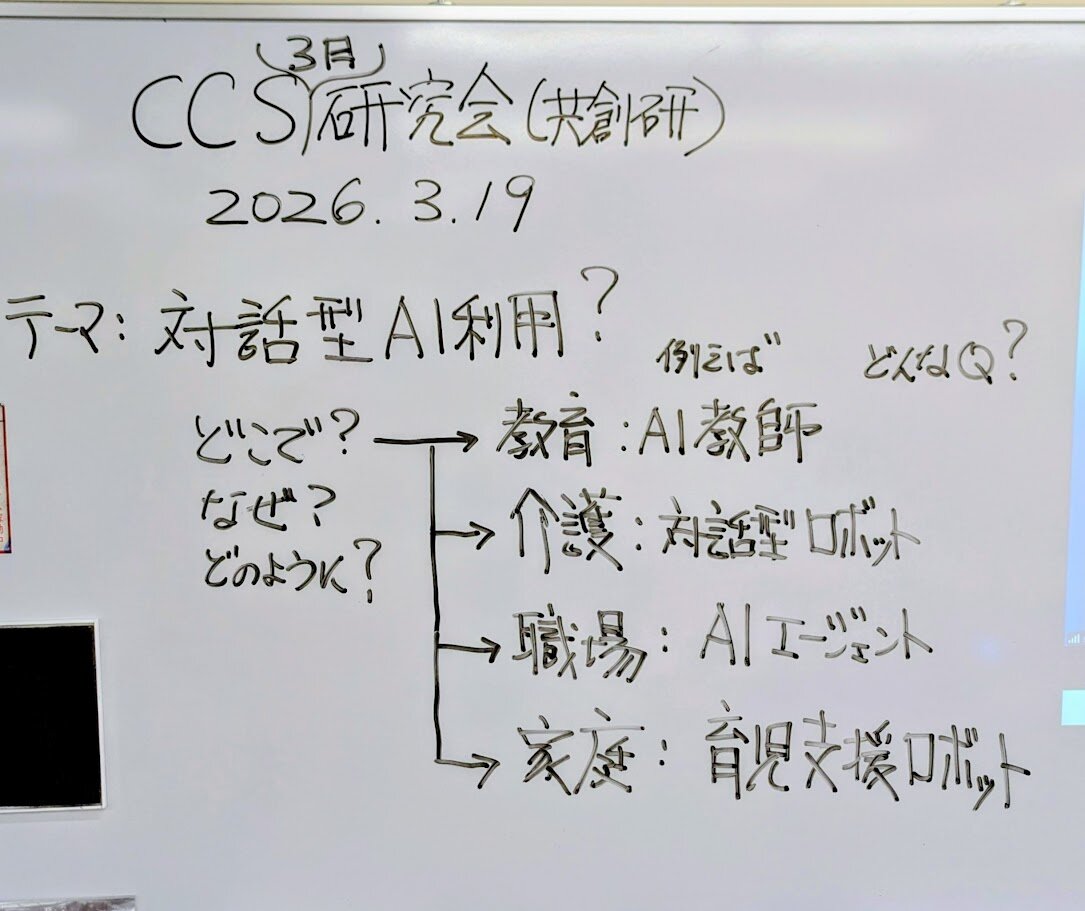 (3月)
CCS研究会(共創研)
2026.3.19
テーマ:対話型AI利用?
例えば どんなQ?
どこで? → 教育:AI教師
なぜ? → 介護:対話型ロボット
どのように?
→ 職場:AIエージェント
→ 家庭:育児支援ロボット